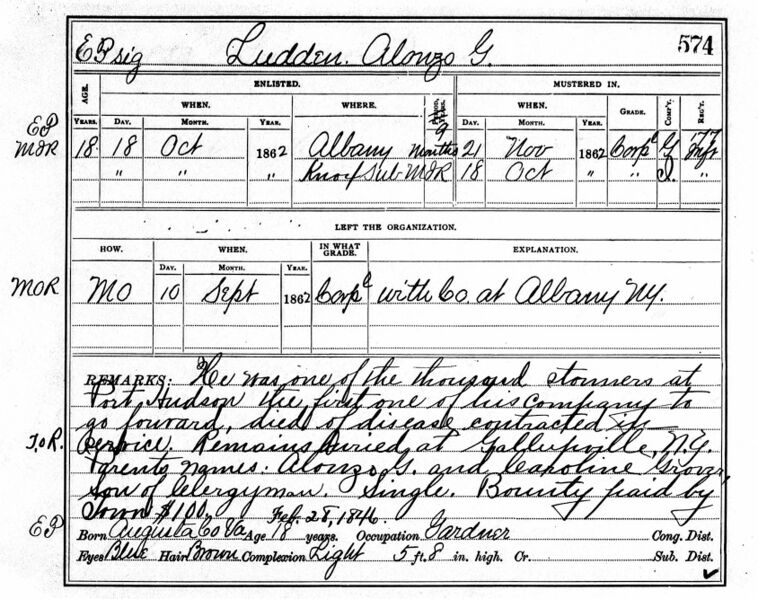 EP sig Ludden. Alonzo G. 574
ENLISTED. MUSTERED IN.
AGE. WHEN. WHERE. PERIOD, YEARS. WHEN. GRADE. COMP'Y. REG'T.
YEARS. DAY. MONTH. YEAR. 9 DAY. MONTH. YEAR.
EP
MIR 18 18 Oct 1862 Albany months 21 Nov 1862 Corpl G 177 Inft
" " " Knox Sub MIR 18 Oct " " I. "
LEFT THE ORGANIZATION.
HOW. WHEN. IN WHAT GRADE. EXPLANATION.
DAY. MONTH. YEAR.
MOR MO 10 Sept 1862 Corpl with Co. at Albany NY.
REMARKS: He was one of the thousand stormers at
Port Hudson the first one of his company to
go forward, died of disease contracted in
T.o R. Service. Remains buried at Gallupville, N.Y.
Parents names: Alonzo G. and Caroline Grover,
son of Clergyman. Single. Bounty paid by
Town $100. Feb. 28, 1846.
EP Born Augusta Co Va Age 18 years. Occupation Gardner Cong. Dist.
Eyes Blue Hair Brown Complexion Light 5 ft. 8 in. high. Cr. Sub. Dist.